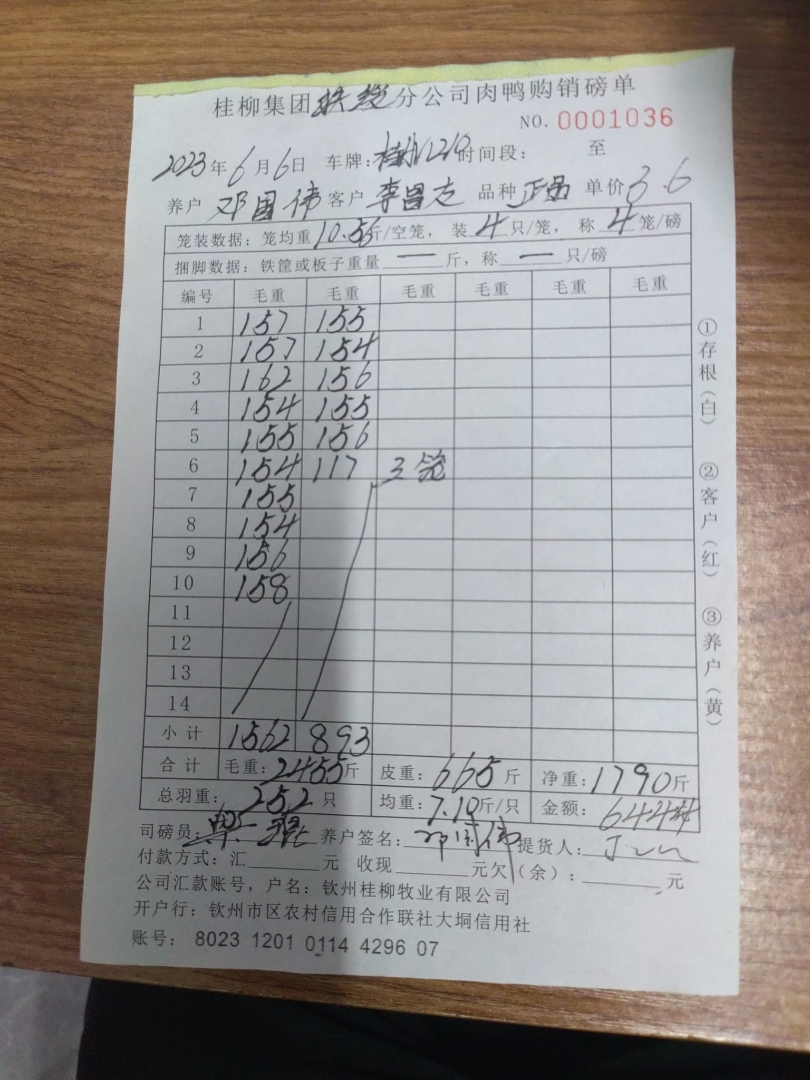 桂柳集团 分公司肉鸭购销磅单
NO. 0001036
2023年6月6日 车牌: 时间段: 至
养户 邓国伟 客户 李昌志 品种 正品 单价 3.6
笼装数据: 笼均重10.56斤/空笼, 装4只/笼, 称4笼/磅
捆脚数据: 铁筐或板子重量 — 斤, 称 — 只/磅
编号 毛重 毛重 毛重 毛重 毛重 毛重
1 157 155
2 157 154
3 162 156
4 154 155
5 155 156
6 154 117 3笼
7 155
8 154
9 156
10 158
11
12
13
14
小计 1562 893
合计 毛重:2455斤 皮重:665斤 净重:1790斤
总羽重: 252只 均重:7.10斤/只 金额: 6444
司磅员: 养户签名: 邓国伟 提货人:
付款方式:汇 元 收现 元欠(余): 元
公司汇款账号, 户名: 钦州桂柳牧业有限公司
开户行: 钦州市区农村信用合作联社大垌信用社
账号: 8023 1201 0114 4296 07
①存根(白)
②客户(红)
③养户(黄)